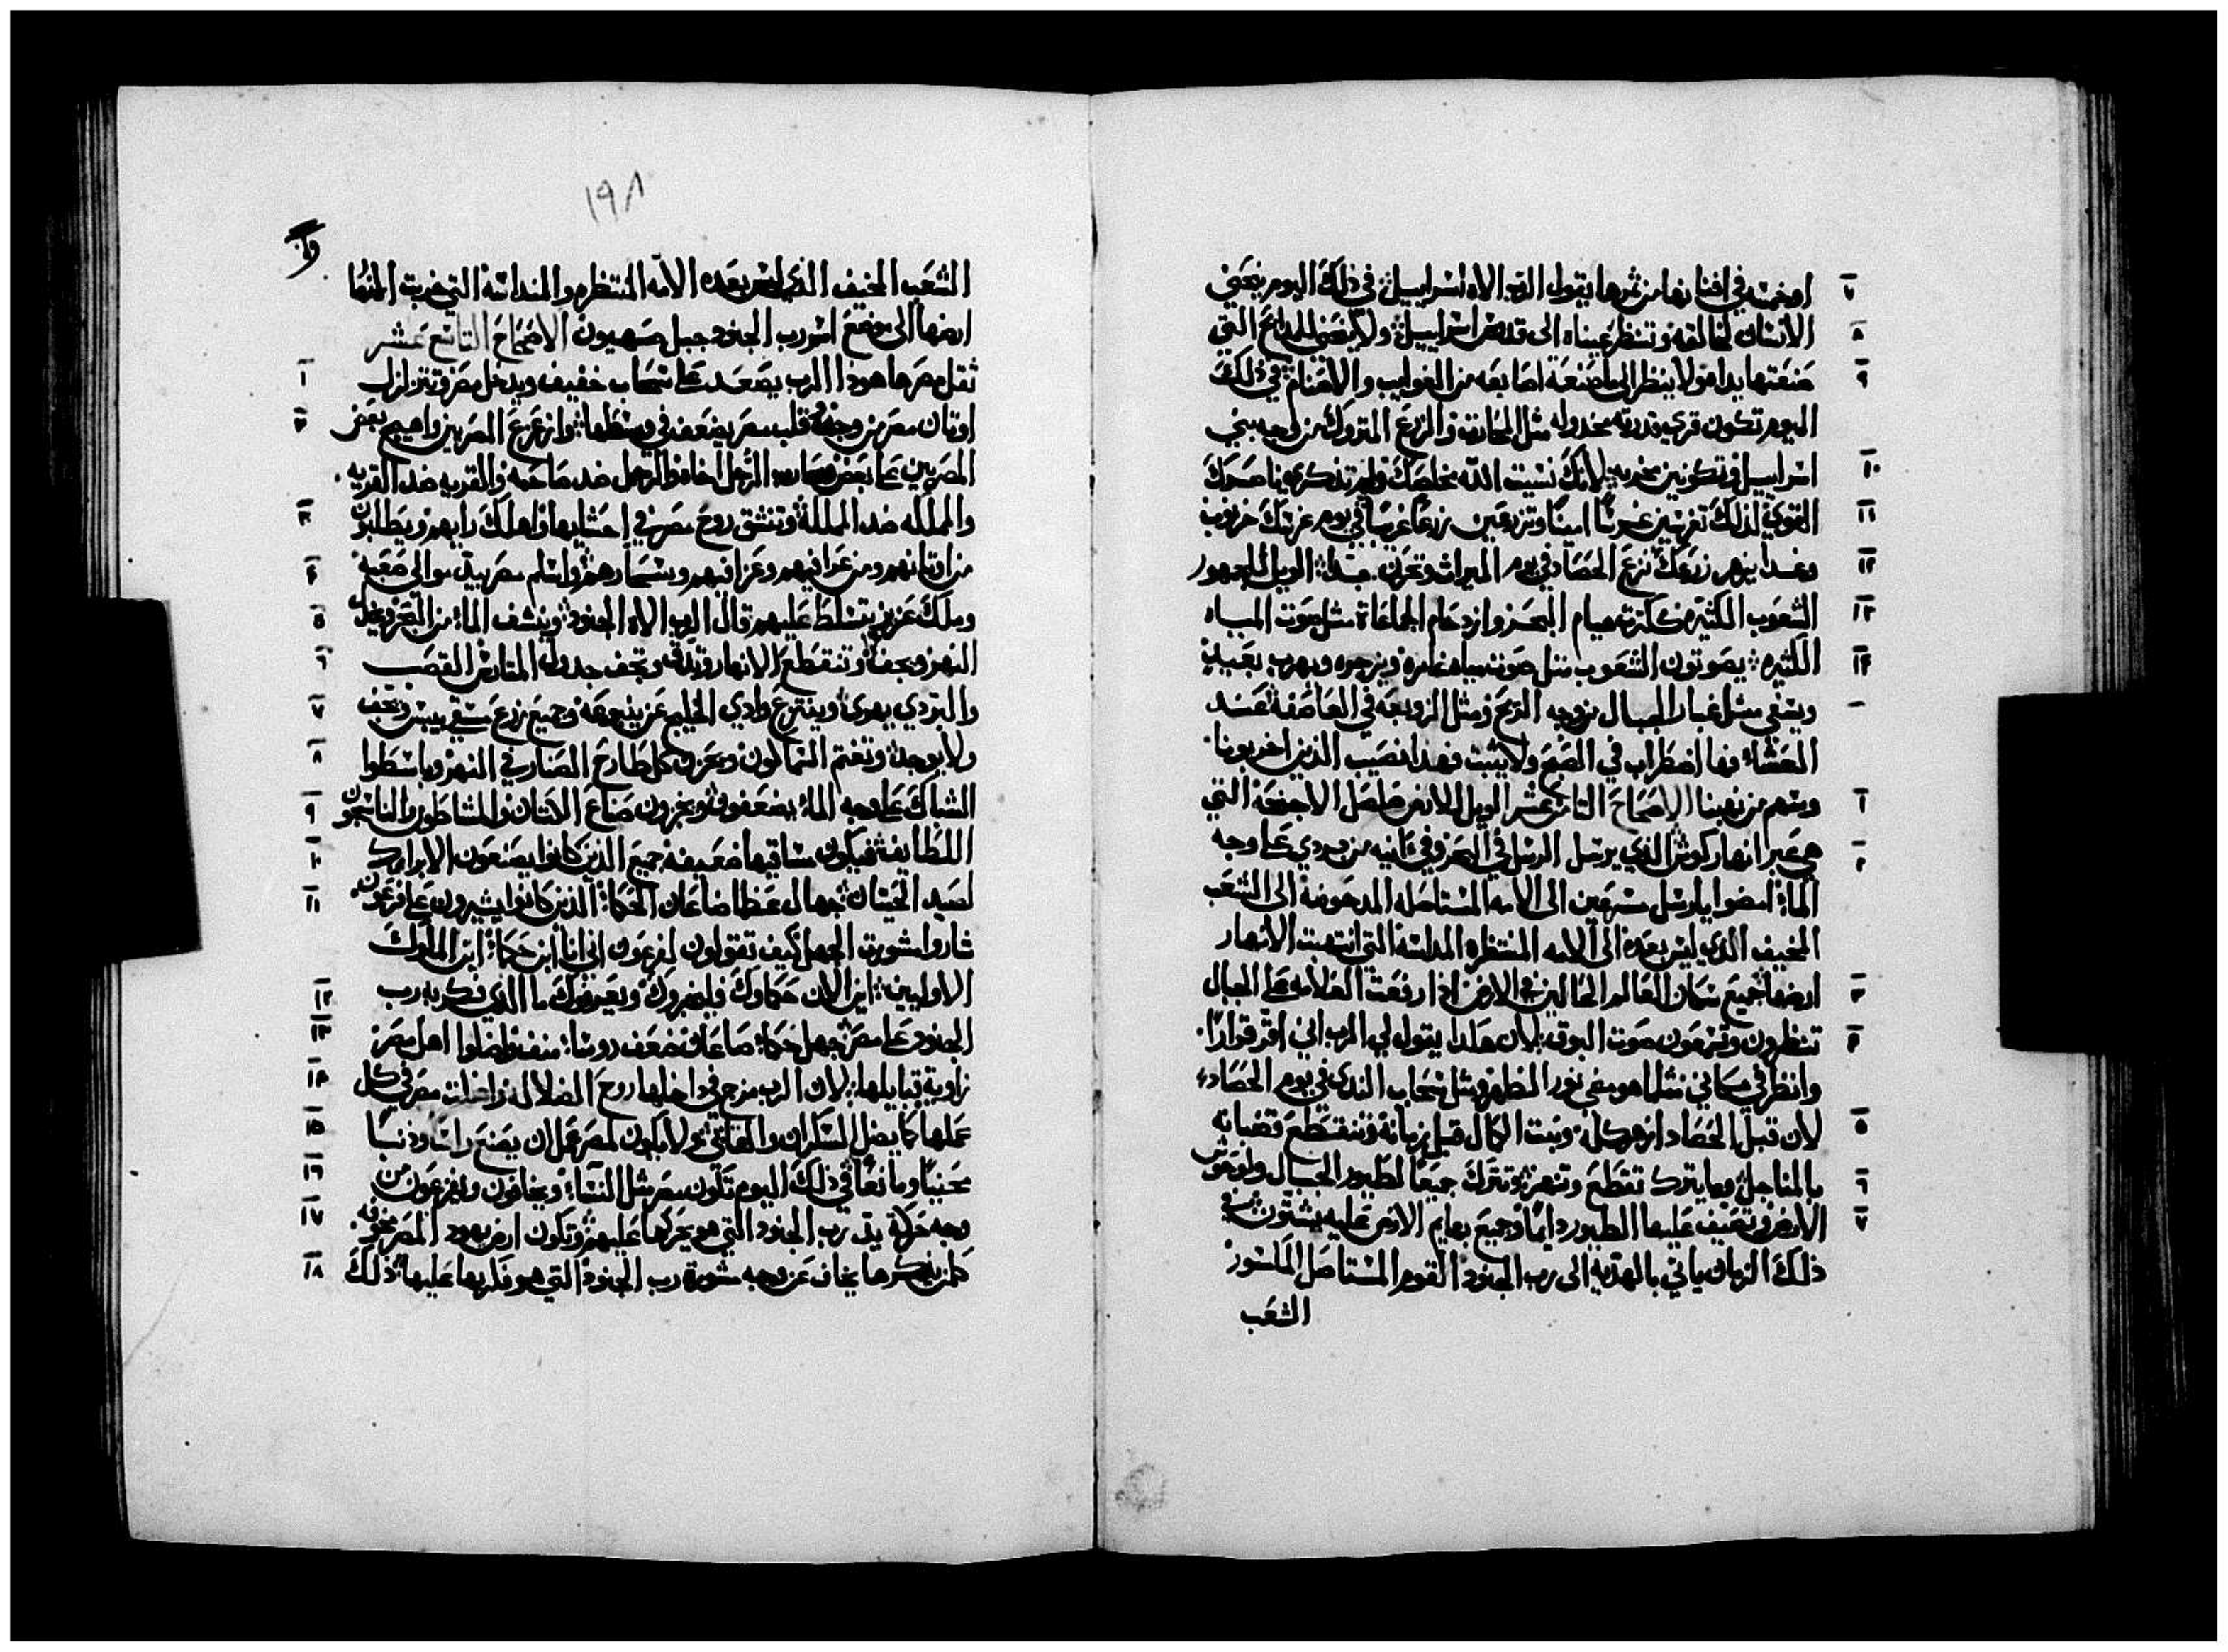 او خمسه في افنانها من ثمرها يقول الرب الاه اسراييل في ذلك اليوم ينحني
٧
الانسان لخالقه وتنظر عيناه الى قدوس اسراييل ولا ينحني للمدابح التي
٨
صنعتها يداه ولا ينظر الى ما صنعة اصابعه من الغوابيب والاصنام في ذلك
٩
اليوم تكون قري قدرته مخدوله مثل المحاريث والزرع المتروك من وجه بني
اسراييل وتكونين مخربه لانك نسيت الله مخلصك ولم تذكري ناصرك
١٠
القوي لذلك تغرسين غرسًا امينًا وتزرعين زرعًا غريبًا في يوم غرسك خرنوب
١١
وغدا يزهر زرعك نزع الحصاد في يوم الميراث وتحزن جدًا الويل لجمهور
١٢
الشعوب الكثيره ككثرة هيام البحر وازدحام الجماعاة مثل صوت المياه
١٣
الكثيره يصوتون الشعوب مثل صوت مياه غامره ويزجره ويهرب بعيد
١٤
ويسفي مثل غبار الجبال من وجه الريح ومثل الزوبعه في العاصفه عند
العشاء فها اضطراب في الصبح ولا يثبت فهذا نصيب الذين اخربونا
وسهم من نهبنا الاصحاح الثامن عشر الويل للارض صلصل الاجنحة التي
١
هي عبر انهار كوش الذي يرسل الرسل في البحر وفي انيه من بردي على وجه
٢
الماء امضوا يا رسل مسرعين الى الامه المستاصله المدحوضه الى الشعب
المخيف الذي ليس بعده الى الامه المنتظره المداسه التي انتهبت الانهار
ارضها جميع سكان العالم الحالين في الارض اذا ارتفعت العلامه على الجبال
٣
تنظرون وتسمعون صوت البوق لان هكدا يقول لي الرب اني اقر قرارًا
٤
وانظر في مكاني مثلما هو مضي نور الظهر ومثل سحاب الندي في يوم الحصاد
لان قبل الحصاد ازهر كله ونبت الكمال قبل زمانه وتنقطع قضبانه
٥
بالمناجل وما يترك تقطع وتنهز وتترك جميعًا لطيور الجبال ولوحوش
٦
الارض وتصيف عليها الطيور دايمًا وجميع بهايم الارض عليه يشتون في
٧
ذلك الزمان ياتي بالهديه الى رب الجنود القوم المستاصل المكسور
الشعب
١٩٨
الشعب المخيف الذي ليس بعده الامه المنتظره والمنداسه التي خربت انهار
ارضها الى موضع اسم رب الجنود جبل صهيون الاصحاح التاسع عشر
ثقل مصر ها هوذا الرب يصعد على سحاب خفيف ويدخل مصر وتتزلزل
١
اوثان مصر من وجهه وقلب مصر يضعف في وسطها وازعزع المصريين واهيج بعض
٢
المصريين على بعض ويحارب الرجل اخاه والرجل ضد صاحبه والقريه ضد القريه
والمملكه ضد المملكة وتنشق روح مصر في احشايها واهلك رايهم ويطلبون
٣
من اوثانهم ومن عرافيهم وعزافيهم وسحارهم واسلم مصر بيد موالي صعبة
٤
وملك عزيز يتسلط عليهم قال الرب الاه الجنود وينشف الماء من البحر ويخل
٥
النهر ويجف وتنقطع الانهار وتدق وتجف جدوله المتارس القصب
٦
والبردي يهوي وينتزع وادي الخليج عن ينبوعه وجميع زرع مسقي ييبس ويجف
٧
ولا يوجد وتغتم السماكون ويحزن كل طارح الصناره في النهر وباسطوا
٨
الشباك على وجه الماء يضعفون ويخزون صناع الكتان والمشاطون والناسجون
٩
اللطايف فيكون سواقيها ضعيفه جميع الذين كانوا يصنعون الابراك
١٠
لصيد الحيتان جهال عظما ضاعان الحكماء الذين كانوا يشيرون على فرعون
١١
شاروا مشورت الجهل كيف تقولون لفرعون اني انا ابن حكماء ابن الملوك
الاوليين اين الان حكماوك فليخبروك ويعرفوك ما الذي فكر به رب
١٢
الجنود على مصر جهل حكماء صاعان ضعف روساء منف واضلوا اهل مصر
١٣
زاوية قبايلها لان الرب مزج في داخلها روح الضلاله واضلت مصر في كل
١٤
عملها كما يضل السكران والمتقاي ولا يكون لمصر عمل ان يصنع راسًا وذنبًا
١٥
محنيًا ومانعًا في ذلك اليوم تكون مصر مثل النساء ويخافون ويفزعون من
١٦
وجه حركة يد رب الجنود التي هو يحركها عليهم وتكون ارض يهود المصر مخوفه
١٧
كلمن يذكرها يخاف عن وجه مشورة رب الجنود التي هو فكر بها عليها ذلك
١٨